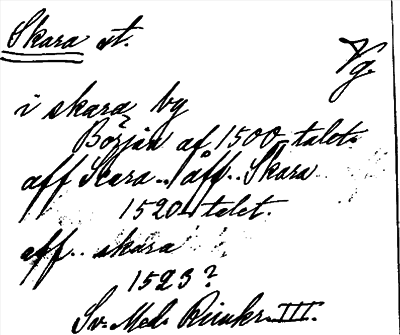 Skara st.
Vg.
i skara by
Början af 1500-talet.
aff Scara.. åff.. Skara
1520-talet.
aff.. skara
1523?
Sv. Med. Rimkr. III.